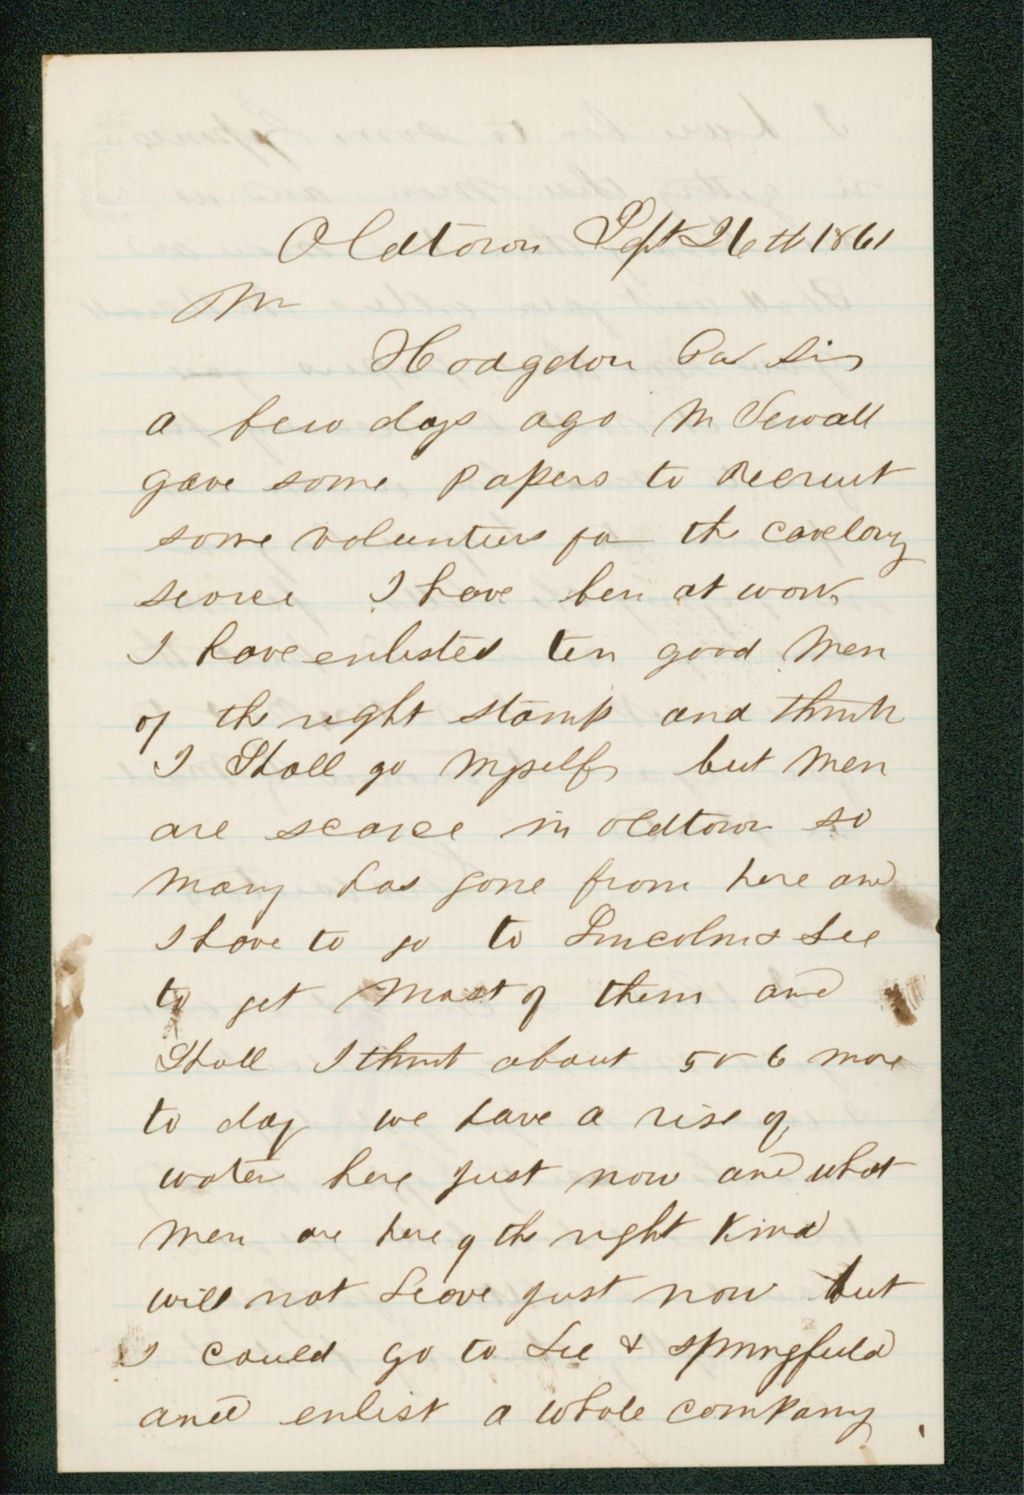 Oldtown Sept 26th 1861
Mr
Hodgdon Dear Sir
a few days ago Mr Sewall
gave some papers to Recruit
some volunteers for the cavelory
I have ben at work
I have enlisted ten good Men
of the right stamp and think
I Shall go Myself but Men
are scarce in oldtown so
Many has gone from here and
I have to go to Lincoln & Lee
to get Most of them and
Shall I think about 5 or 6 more
to day we have a rise of
water here just now and what
Men are here of the right Kind
will not Leave just now but
I could go to Lee & Springfield
and enlist a whole company